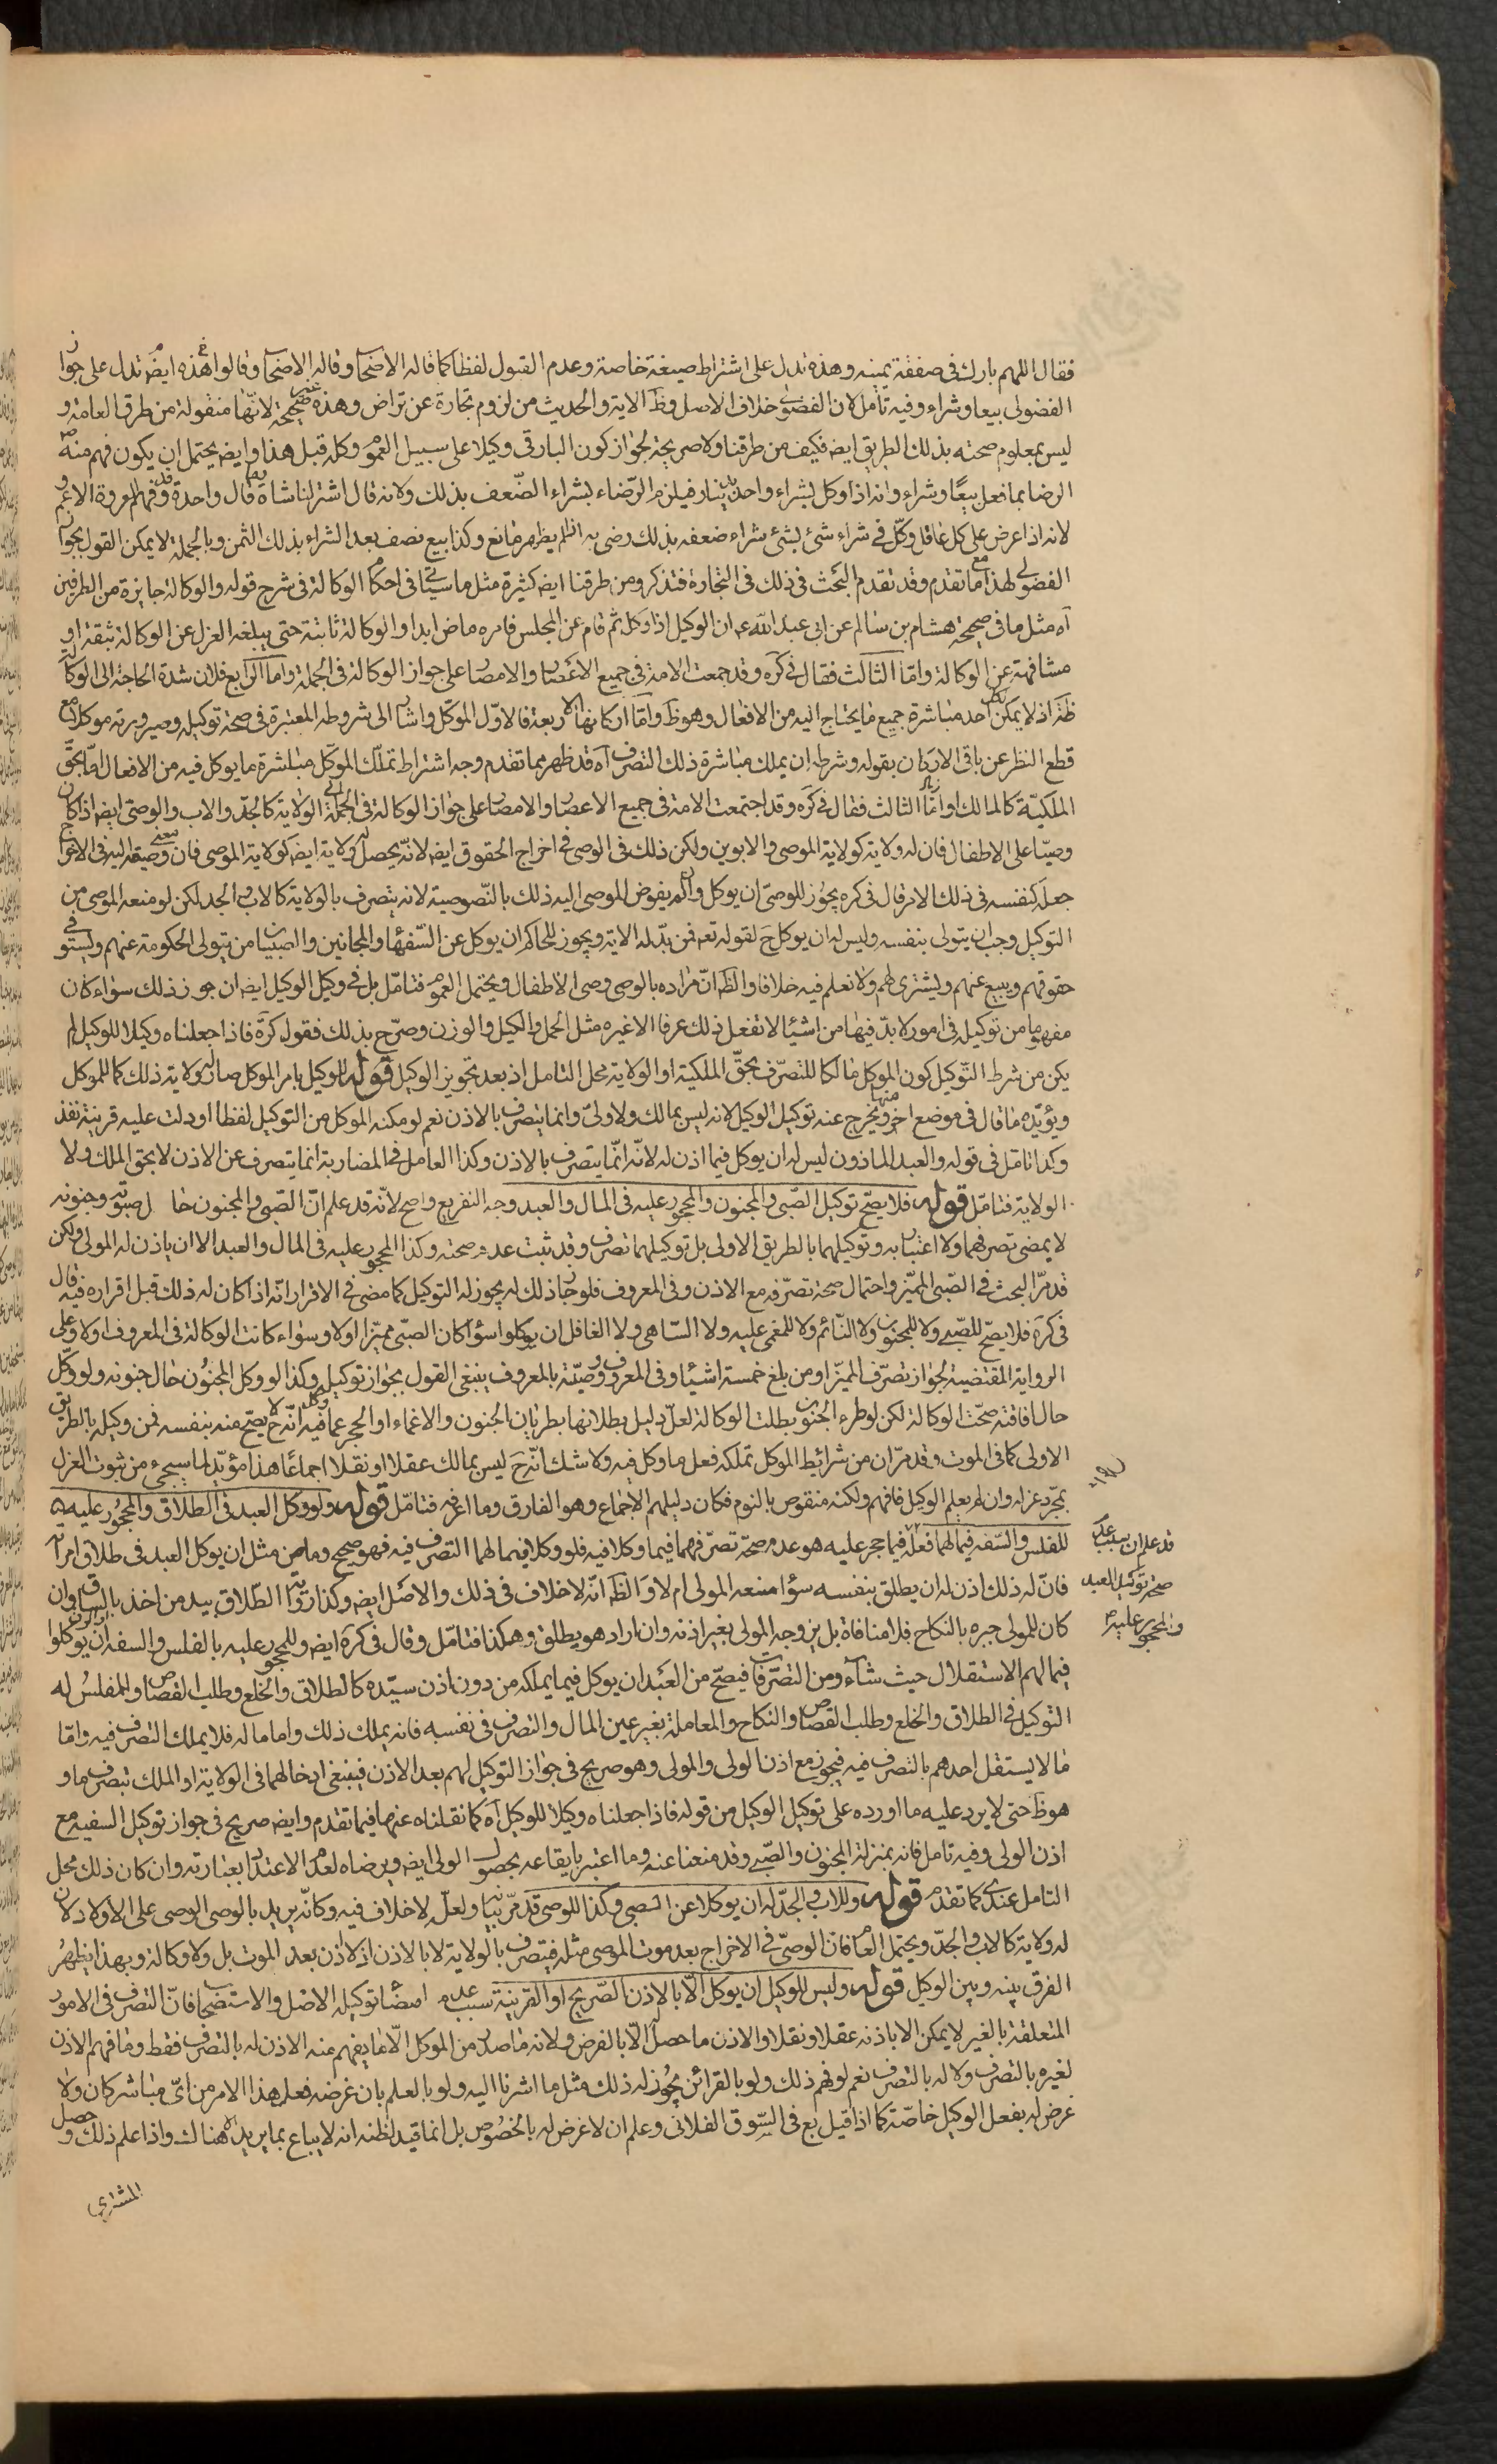 فقال اللهم بارك فى صفقة يمينه وهذه تدل على اشتراط صيغة خاصة وعدم القبول لفظا كما قاله الاصحاب وقاله الاصحاب وقالوا هذه ايضا تدل على جواز
الفضولى بيعا وشراء وفيه تأمل لان الفضولى خلاف الاصل وظ الاية والحديث من لزوم تجارة عن تراض وهذه غير صحيحة لانها منقولة من طرق العامة و
ليس بمعلوم صحته بذلك الطريق ايضا فكيف من طرقنا ولا صريحة لجواز كون البارقى وكيلا على سبيل العموم وكله قبل هذا وايضا يحتمل ان يكون فهم منه ص
الرضا بما فعل بيعا وشراء وانه اذا وكل بشراء واحد بدينار فيلزم الرضاء بشراء الضعف بذلك ولانه قال اشتر لنا شاة وما قال واحدة وقد فهم لعروة الاعم و
لانه اذا عرض على كل عاقل وكل فى شراء شئ بشئ شراء ضعفه بذلك رضى به ان لم يظهر مانع وكذا بيع نصف بعد الشراء بذلك الثمن وبالجملة لا يمكن القول بجواز
الفضولى لهذا مع ما تقدم وقد تقدم البحث فى ذلك فى التجارة فتذكر ومن طرقنا ايضا كثيرة مثل ما سيأتى فى احكام الوكالة فى شرح قوله والوكالة جايزة من الطرفين
آه مثل ما فى صحيحة هشام بن سالم عن ابى عبد الله ع ان الوكيل اذا وكل ثم قام عن المجلس فامره ماض ابدا والوكالة ثابتة حتى يبلغه العزل عن الوكالة بثقة او
مشافهة عن الوكالة واما الثالث فقال فى كره وقد جمعت الامة فى جميع الاعصار والامصار على جواز الوكالة فى الجملة واما الرابع فلان شدة الحاجة الى الوكالة
ظة اذ لا يمكن لكل احد مباشرة جميع ما يحتاج اليه من الافعال وهو ظ واما اركانها الاربعة فالاول الموكل واشار الى شروطه المعتبرة فى صحة توكيله وصيرورته موكلا مع
قطع النظر عن باقى الاركان بقوله وشرطه ان يملك مباشرة ذلك التصرف آه قد ظهر مما تقدم وجه اشتراط تملك الموكل مباشرة ما يوكل فيه من الافعال اما بحق
الملكية كالمالك او اما الثالث فقال فى كره وقد اجتمعت الامة فى جميع الاعصار والامصار على جواز الوكالة فى الجملة الولاية كالجد والاب والوصى ايضا اذا كان
وصيا على الاطفال فان له ولاية كولاية الموصى والابوين ولكن ذلك فى الوصى فى اخراج الحقوق ايضا لانه يحصل له ولاية ايضا كولاية الموصى فان معنى وصيته اليه فى الاخراج
جعله كنفسه فى ذلك الامر قال فى كره يجوز للوصى ان يوكل وان لم يفوض الموصى اليه ذلك بالنصوصية لانه يتصرف بالولاية كالاب والجد لكن لو منعه الموصى من
التوكيل وجب ان يتولى بنفسه وليس له ان يوكل ح لقوله تعه فمن بدله الاية ويجوز للحاكم ان يوكل عن السفهاء والمجانين والصبيان من يتولى الحكومة عنهم ويستوفى
حقوقهم ويبيع عنهم ويشترى لهم ولا نعلم فيه خلافا والظ ان مراده بالوصى وصى الاطفال ويحتمل العموم فتامل بل فى وكيل الوكيل ايضا ان جوز ذلك سواء كان
مفهوما من توكيله فى امور لا بد فيها من اشيئا لا تفعل ذلك عرفا الا غيره مثل الحمل والكيل والوزن وصرح بذلك فقوله كره فاذا جعلناه وكيلا للوكيل لم
يكن من شرط التوكيل كون الموكل مالكا للتصرف بحق الملكية او الولاية محل التامل اذ بعد تجويز الوكيل قوله للوكيل بامر الموكل صار له ولاية ذلك كما للموكل
ويؤيده ما قال فى موضع اخر منها ويخرج عنه توكيل الوكيل لانه ليس بمالك ولا ولى وانما يتصرف بالاذن نعم لو مكنه الموكل من التوكيل لفظا او دلت عليه قرينة نفذ
وكذا تامل فى قوله والعبد الماذون ليس له ان يوكل فيما اذن له لانه انما يتصرف بالاذن وكذا العامل فى المضاربة انما يتصرف عن الاذن لا بحق الملك ولا
الولاية فتامل قوله فلا يصح توكيل الصبى والمجنون والمحجور عليه فى المال والعبد وجه التفريع واضح لانه قد علم ان الصبى والمجنون حال صبوته وجنونه
لا يمضى تصرفهما ولا اعتبار به وتوكيلهما بالطريق الاولى بل توكيلهما تصرف وقد ثبت عدم صحته وكذا المحجور عليه فى المال والعبد الا ان ياذن له المولى ولكن
قد مر البحث فى الصبى المميز واحتمال صحة تصرفه مع الاذن وفى المعروف فلو جاز ذلك له يجوز له التوكيل كما مضى فى الاقرار انه اذا كان له ذلك قبل اقراره فيه قال
فى كره فلا يصح للصبى ولا للمجنون ولا النائم ولا للمغمى عليه ولا الساهى ولا الغافل ان يوكلوا سواء كان الصبى مميزا اولا وسواء كانت الوكالة فى المعروف اولا وعلى
الرواية المقتضية لجواز تصرف المميز او من بلغ خمسة اشبار فى المعروف ووصيته بالمعروف ينبغى القول بجواز توكيله وكذا لو وكل المجنون حال جنونه ولو وكل
حال افاقته صحت الوكالة لكن لو طرء الجنون بطلت الوكالة لعل دليل بطلانها بطريان الجنون والاغماء او الحجر عما وكل فيه انه ح لا يصح منه بنفسه فمن وكيله بالطريق
الاولى كما فى الموت وقد مر ان من شرائط الموكل تملكه فعل ما وكل فيه ولا شك انه ح ليس بمالك عقلا او نقلا اجماعا هذا مؤيد لما سيجىء من ثبوت العزل
بمجرد عزله وان لم يعلم الوكيل فافهم ولكنه منقوص بالنوم فكان دليلهم الاجماع وهو الفارق وما اعرفه فتامل قوله ولو وكل العبد فى الطلاق والمحجور عليه
للفلس والسفه فيما لهما فعله فيما حجر عليه هو عدم صحة تصرفهما فيما وكلا فيه فلو وكلا فيما لهما التصرف فيه فهو صحيح وماض من مثل ان يوكل العبد فى طلاق امراته
فان له ذلك اذن له ان يطلق بنفسه سواء منعه المولى ام لا والظ انه لا خلاف فى ذلك والاصل ايضا وكذا رواية الطلاق بيد من اخذ بالساق وان
كان للمولى جبره بالنكاح فلا منافاة بل يزوجه المولى بغير اذنه وان اراد هو يطلق وهكذا فتامل وقال فى كره ايضا وللمحجور عليه بالفلس والسفه ان يوكلوا
فيما لهم الاستقلال حيث شاء ومن التصرفات فيصح من العبد ان يوكل فيما يملكه من دون اذن سيده كالطلاق والخلع وطلب القصاص والمفلس له
التوكيل فى الطلاق والخلع وطلب القصاص والنكاح والمعاملة بغير عين المال والتصرف فى نفسه فانه يملك ذلك واما ماله فلا يملك التصرف فيه واما
ما لا يستقل احدهم بالتصرف فيه فيجوز مع اذن الولى والمولى وهو صريح فى جواز التوكيل لهم بعد الاذن فينبغى ادخالهما فى الولاية او الملك بتصرف ما و
هو ظ حتى لا يرد عليه ما اورده على توكيل الوكيل من قوله فاذا جعلناه وكيلا للوكيل آه كما نقلناه عنها فيما تقدم وايضا صريح فى جواز توكيل السفيه مع
اذن الولى وفيه تامل فانه بمنزلة المجنون والصبى وقد منعنا عنه وما اعتبر بايقاعه بحضور الولى ايضا وبرضاه لعدم الاعتداد بعبارته وان كان ذلك محل
التامل عندى كما تقدم قوله وللاب والجد له ان يوكلا عن الصبى وكذا للوصى قد مر بيانها ولعله لا خلاف فيه وكانه يريد بالوصى الوصى على الاولاد لان
له ولاية كالاب والجد ويحتمل العام فان الوصى فى الاخراج بعد موت الموصى مثله فيتصرف بالولاية لا بالاذن اذ لا اذن بعد الموت بل ولا وكالة وبهذا يظهر
الفرق بينه وبين الوكيل قوله وليس للوكيل ان يوكل الا بالاذن الصريح او القرينة سبب عدم امضاء توكيله الاصل والاستصحاب فان التصرف فى الامور
المتعلقة بالغير لا يمكن الا باذنه عقلا ونقلا والاذن ما حصل له الا بالفرض ولانه ما صدر من الموكل الا ما يفهم عنه الاذن له بالتصرف فقط وما فهم الاذن
لغيره بالتصرف ولا له بالتصرف نعم لو فهم ذلك ولو بالقرائن يجوز له ذلك مثل ما اشرنا اليه ولو بالعلم بان غرضه فعل هذا الامر من اى مباشر كان ولا
غرض له بفعل الوكيل خاصة كما اذا قيل بع فى السوق الفلانى وعلم ان لا غرض له بالخصوص بل انما قيد لظنه انه لا يباع بما يريد الا هناك واذا علم ذلك وحصل
المشترى
قد علم ان سبب عدم
صحة توكيل العبد
والمحجور عليه